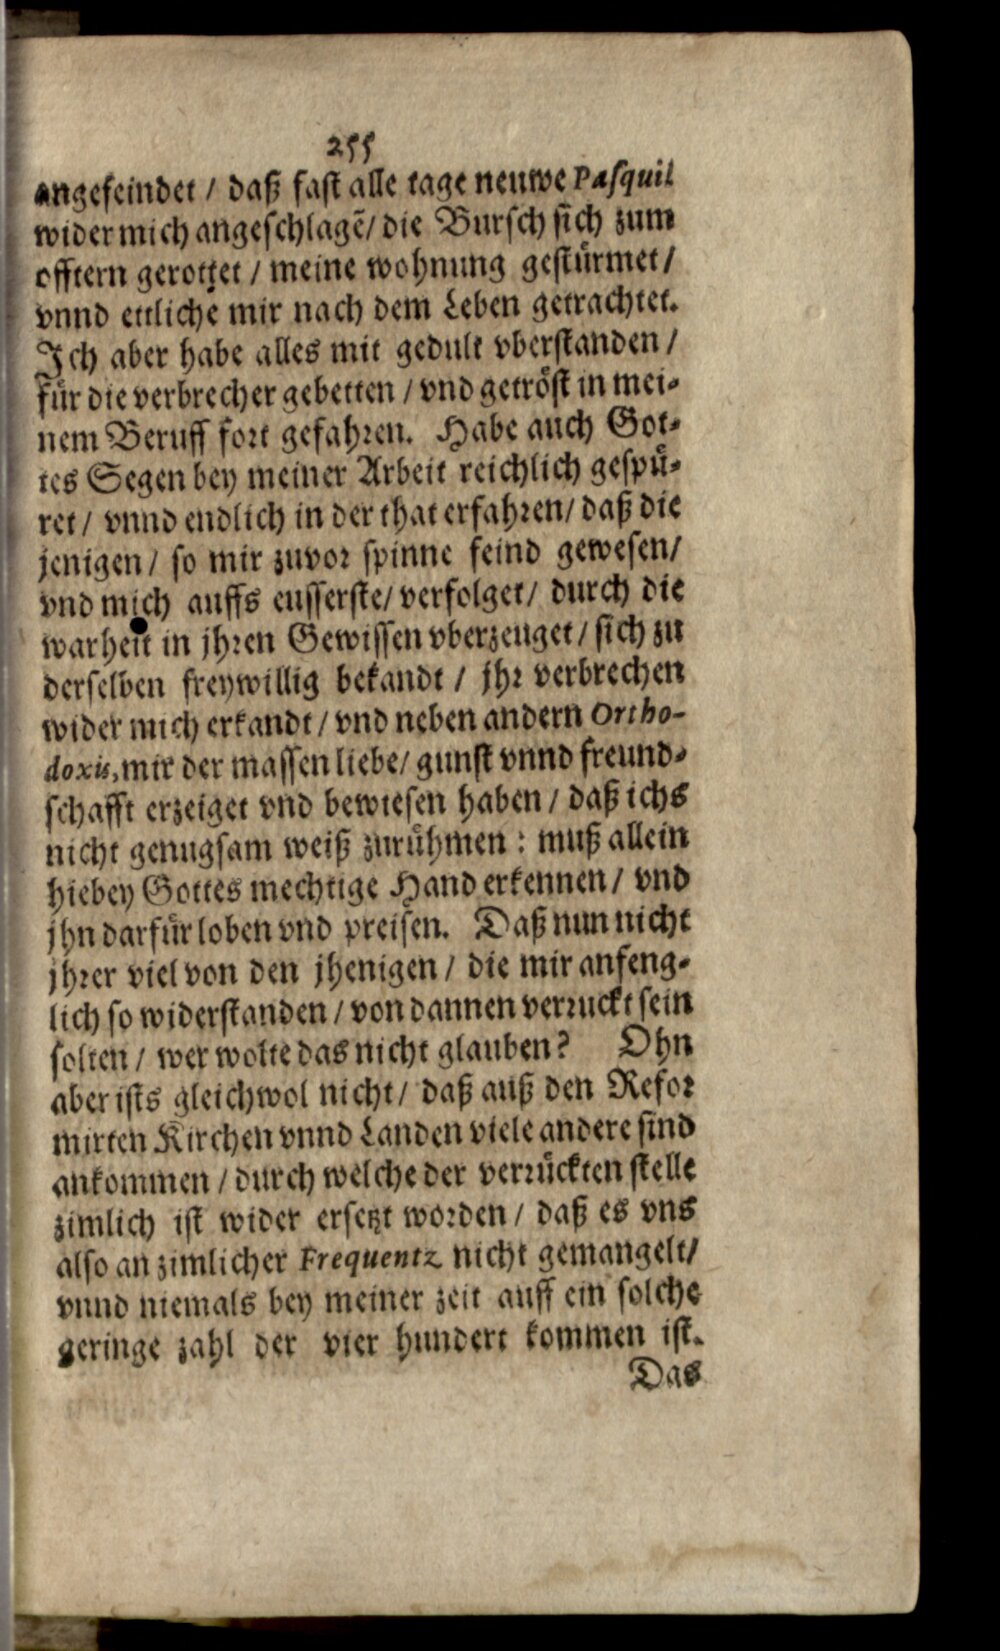 255
angefeindet / daß fast alle tage neuwe Pasquil
wider mich angeschlagẽ/ die Bursch sich zum
offtern gerottet / meine wohnung gestürmet /
vnnd ettliche mir nach dem Leben getrachtet.
Ich aber habe alles mit gedult vberstanden /
für die verbrecher gebetten / vnd getröst in mei-
nem Beruff fort gefahren. Habe auch Got-
tes Segen bey meiner Arbeit reichlich gespü-
ret / vnnd endlich in der that erfahren / daß die
jenigen / so mir zuvor spinne feind gewesen /
vnd mich auffs eusserste / verfolget / durch die
warheit in jhren Gewissen vberzeuget / sich zu
derselben freywillig bekandt / jhr verbrechen
wider mich erkandt / vnd neben andern Ortho-
doxis, mir der massen liebe / gunst vnnd freund-
schafft erzeiget vnd bewiesen haben / daß ichs
nicht genugsam weiß zurühmen : muß allein
hiebey Gottes mechtige Hand erkennen / vnd
jhn darfür loben vnd preisen. Daß nun nicht
jhrer viel von den jhenigen / die mir anfeng-
lich so widerstanden / von dannen verruckt sein
solten / wer wolte das nicht glauben? Ohn
aber ists gleichwol nicht / daß auß den Refor
mirten Kirchen vnnd Landen viele andere sind
ankommen / durch welche der verrückten stelle
zimlich ist wider ersetzt worden / daß es vns
also an zimlicher Frequentz nicht gemangelt /
vnnd niemals bey meiner zeit auff ein solche
geringe zahl der vier hundert kommen ist.
Das